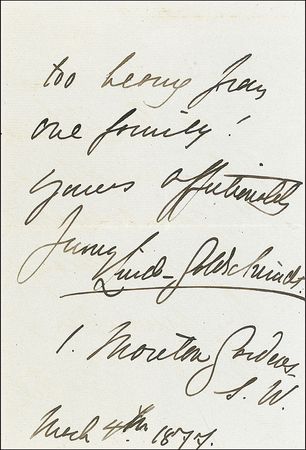 too heavy from
one family!
yours affectionately
Jenny
Lind-Goldschmidt.
1. Moreton Gardens
S. W.
March 4th 1877.